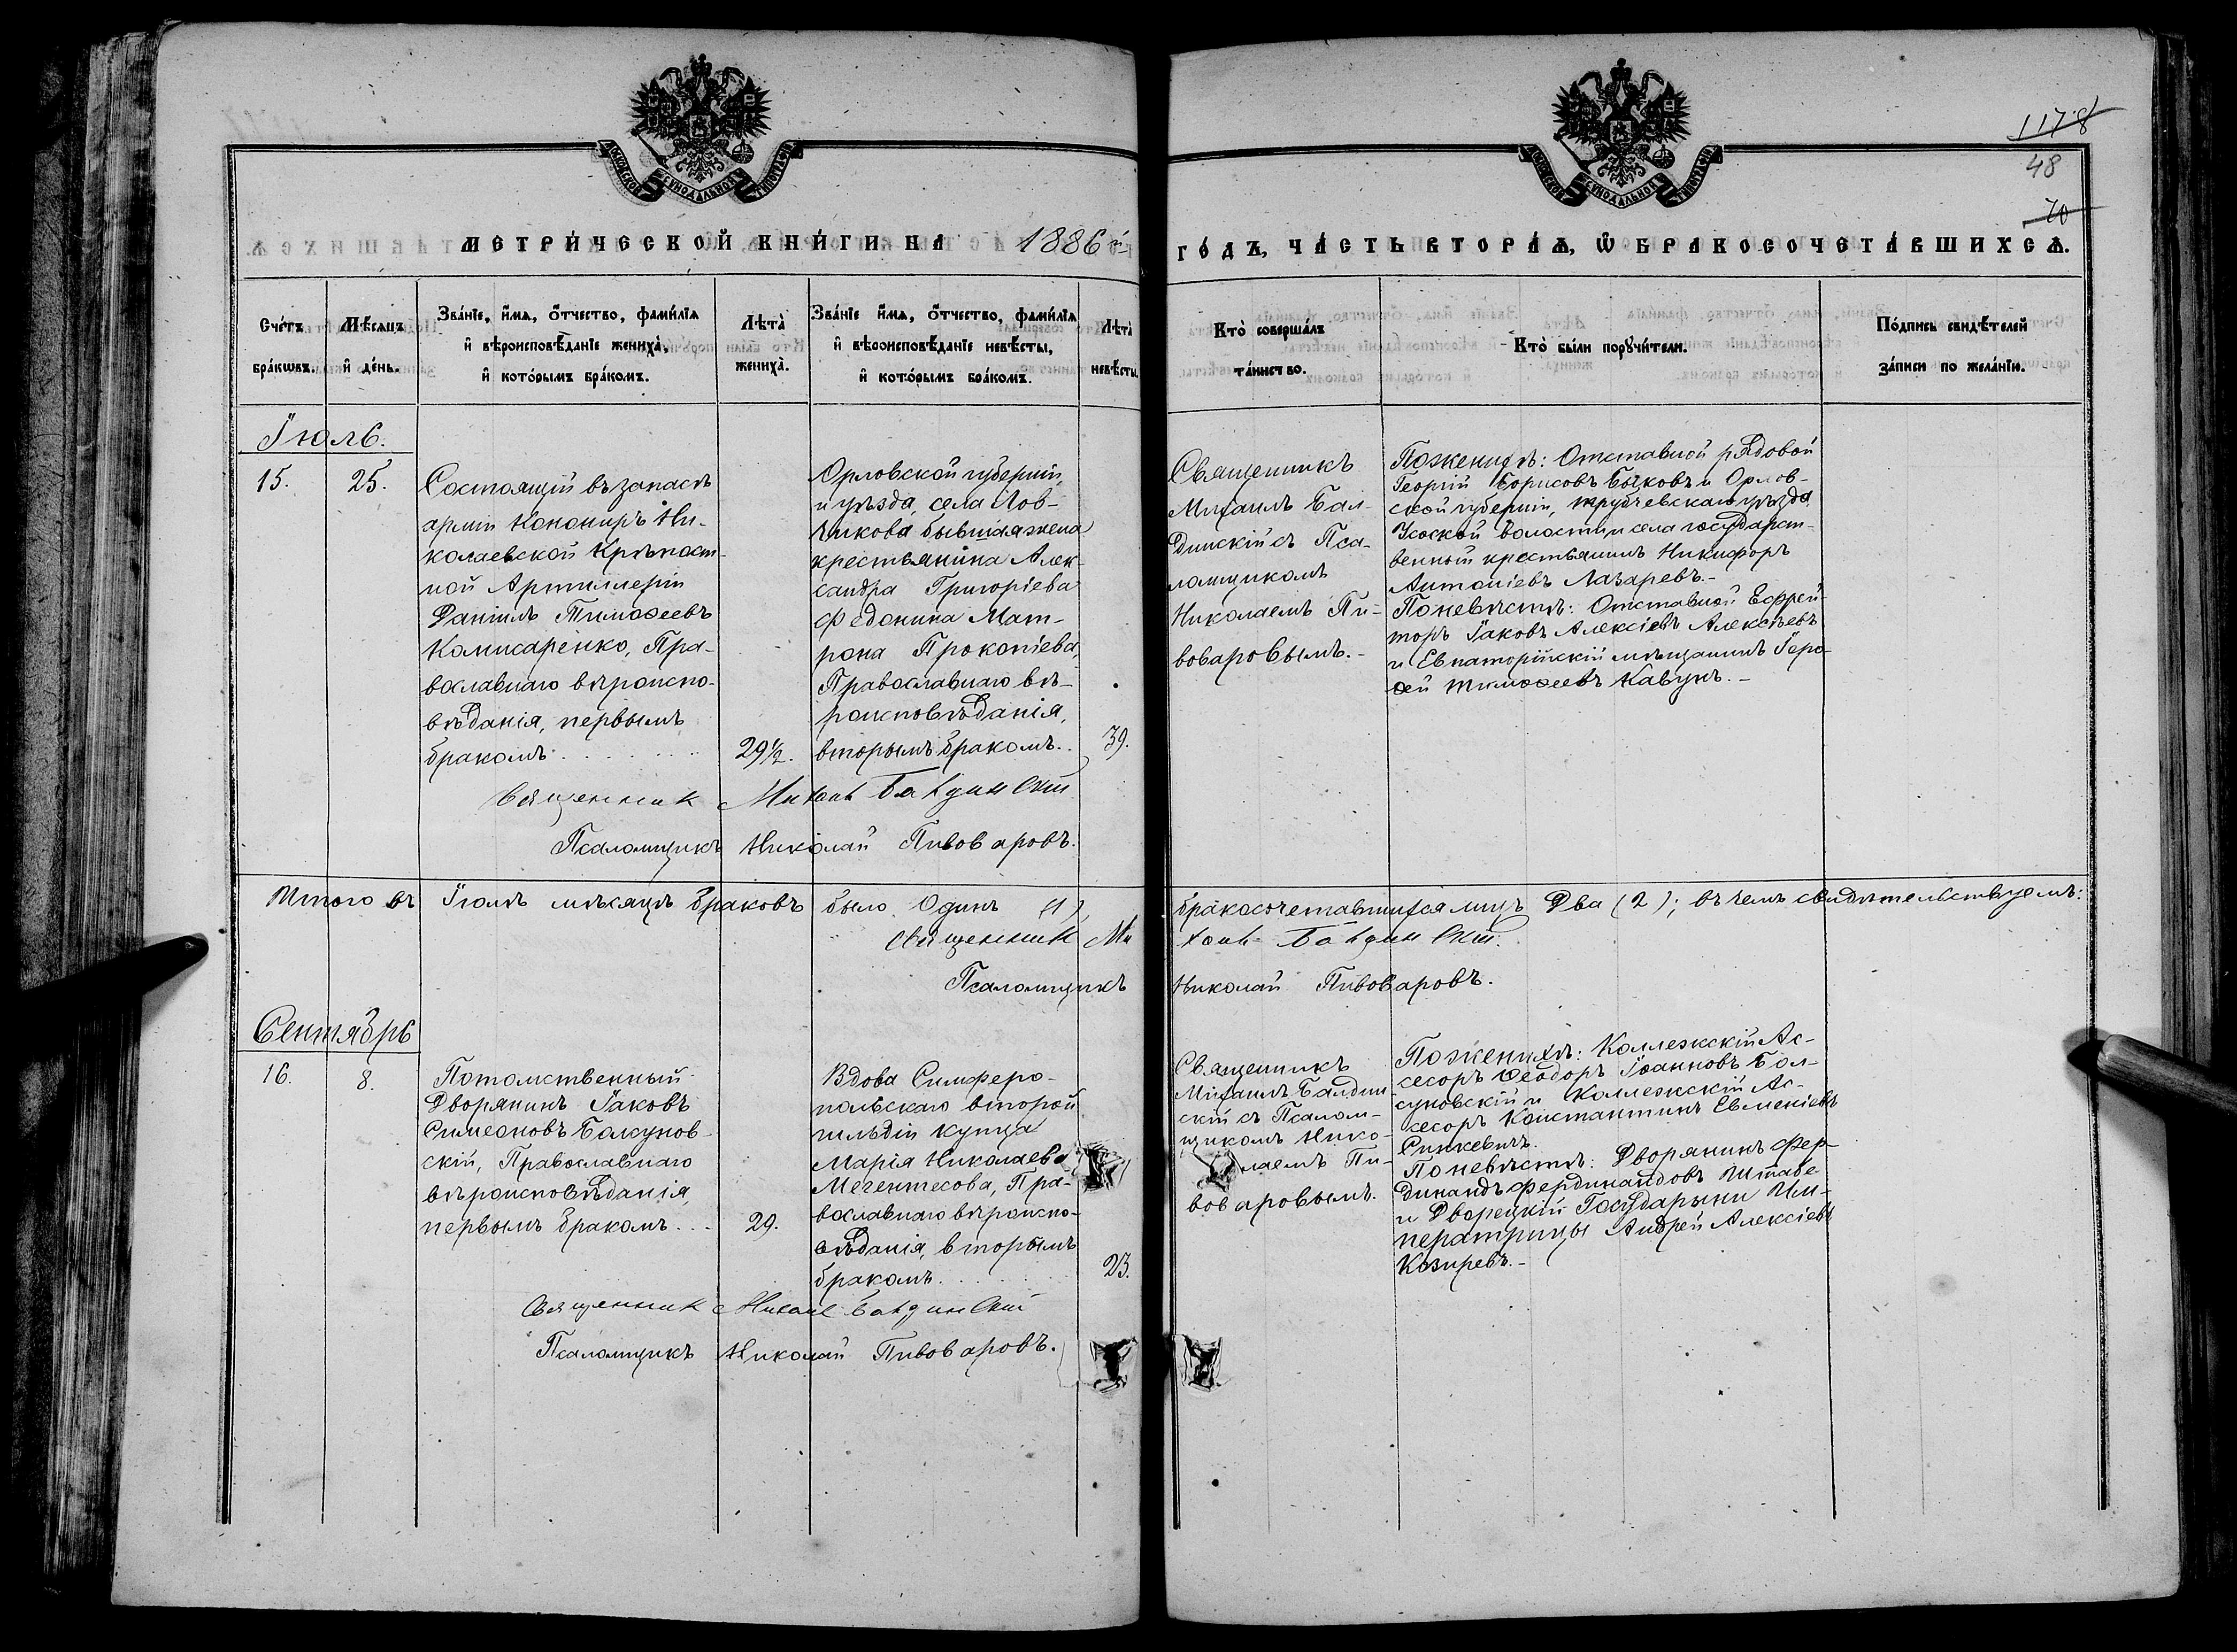 МОСКОВСКОЙ СѴНОДАЛЬНОЙ ТИПОГРАФІИ
МОСКОВСКОЙ СѴНОДАЛЬНОЙ ТИПОГРАФІИ
1178
48
70
МЕТРИ́ЧЕСКОЙ КНИ́ГИ НА 1886й
ГО́ДЪ, ЧА́СТЬ ВТОРА́Ѧ, Ѡ҆ БРАКОСОЧЕТА́ВШИХСѦ.
Сче́тъ
бра́кѡвъ.
Мѣ́сѧцъ
и҆ де́нь.
Зва́нїе, и҆́мѧ, ѻ҆́тчество, фами́лїѧ
и҆ вѣроисповѣ́данїе жениха̀,
и҆ кото́рымъ бра́комъ.
Лѣта̀
жениха̀.
Зва́нїе и҆́мѧ, ѻ҆́тчество, фами́лїѧ
и҆ вѣроисповѣ́данїе невѣ́сты,
и҆ кото́рымъ бра́комъ.
Лѣта̀
невѣ́сты.
Кто̀ соверша́лъ
та́инство.
Кто̀ бы́ли порꙋчи́тели.
По́дпись свидѣ́телей
за́писи по жела́нїю.
Іюль.
15.
25.
Состоящій въ запасѣ
арміи Канониръ Ни-
колаевской Крѣпост-
ной Артиллеріи
Даніилъ Тимоѳеевъ
Комисаренко, Пра-
вославнаго вѣроиспо-
вѣданія, первымъ
бракомъ
29½.
Орловской губерніи
и уѣзда, села Лов-
чикова бывшая жена
крестьянина Алек-
сандра Григоріева
Федонина Мат-
рона Прокопіева,
Православнаго вѣ-
роисповѣданія,
вторымъ бракомъ.
39.
Священникъ
Михаилъ Бал-
динскій съ Пса-
ломщикомъ
Николаемъ Пи-
воваровымъ.-
По женихѣ: Отставной рядовой
Георгій Борисовъ Быковъ и Орлов-
ской губерніи, Трубчевскаго уѣзда
Усоской волости и села государст-
венный крестьянинъ Никифоръ
Антоніевъ Лазаревъ.-
По невѣстѣ: Отставной Ефрей-
торъ Іаковъ Алексіевъ Алексѣевъ
и Евпаторійскій мѣщанинъ Іеро-
ѳей Тимоѳеевъ Кавунъ.-
Священник Михаил Балдинскій
Псаломщикъ Николай Пивоваровъ.
Итого въ Іюлѣ мѣсяцѣ браковъ было Одинъ (1), бракосочетавшихся лицъ Два (2); въ чемъ свидѣтельствуемъ:
Священник Михаил Балдинскій.
Псаломщикъ Николай Пивоваровъ.
Сентябрь
16.
8.
Потомственный
Дворянинъ Іаковъ
Симеоновъ Балсунов-
скій, Православнаго
вѣроисповѣданія,
первымъ бракомъ...
29.
Вдова Симферо-
польскаго второй
гильдіи купца
Марія Николаева
Мегентесова, Пра-
вославнаго вѣроиспо-
вѣданія, вторымъ
бракомъ.
23.
Священникъ
Михаилъ Балдин
скій съ Псалом-
щикомъ Нико-
лаемъ Пи-
воваровымъ.
По женихѣ: Коллежскій Ас-
сесоръ Ѳеодоръ Іоанновъ Бал-
суновскій и Коллежскій Ас-
сесоръ Константинъ Евменіевъ
Синкевичъ.
По невѣстѣ: Дворянинъ Фер-
динандъ Фердинандовъ Штабе
и Дворецкій Государыни Им-
ператрицы Андрей Алексіевъ
Козыревъ.-
Священник Михаил Балдинскій
Псаломщикъ Николай Пивоваровъ.